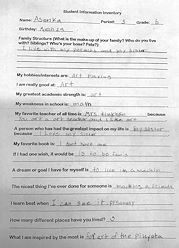 Student Information Inventory
Name: Period: 3 Grade: 6
Birthday:
Family Structure (What is the make-up of your family? Who do you live
with? Siblings? Who's your boss? Pets?):
I live with my parents and my sister
My hobbies/interests are: Art
I am really good at: Art
My greatest academic strength is: art
My weakness in school is: math
My favorite teacher of all time is because
A person who has had the greatest impact on my life is my sister
because I love my sister
My favorite book is: I dont have one
If I had one wish, it would be
A dream or goal I have for myself is to live in a mansion
The nicest thing I've ever done for someone is making a friends
I learn best when I can see it
How many different places have you lived? 3
What I am inspired by the most is art of the